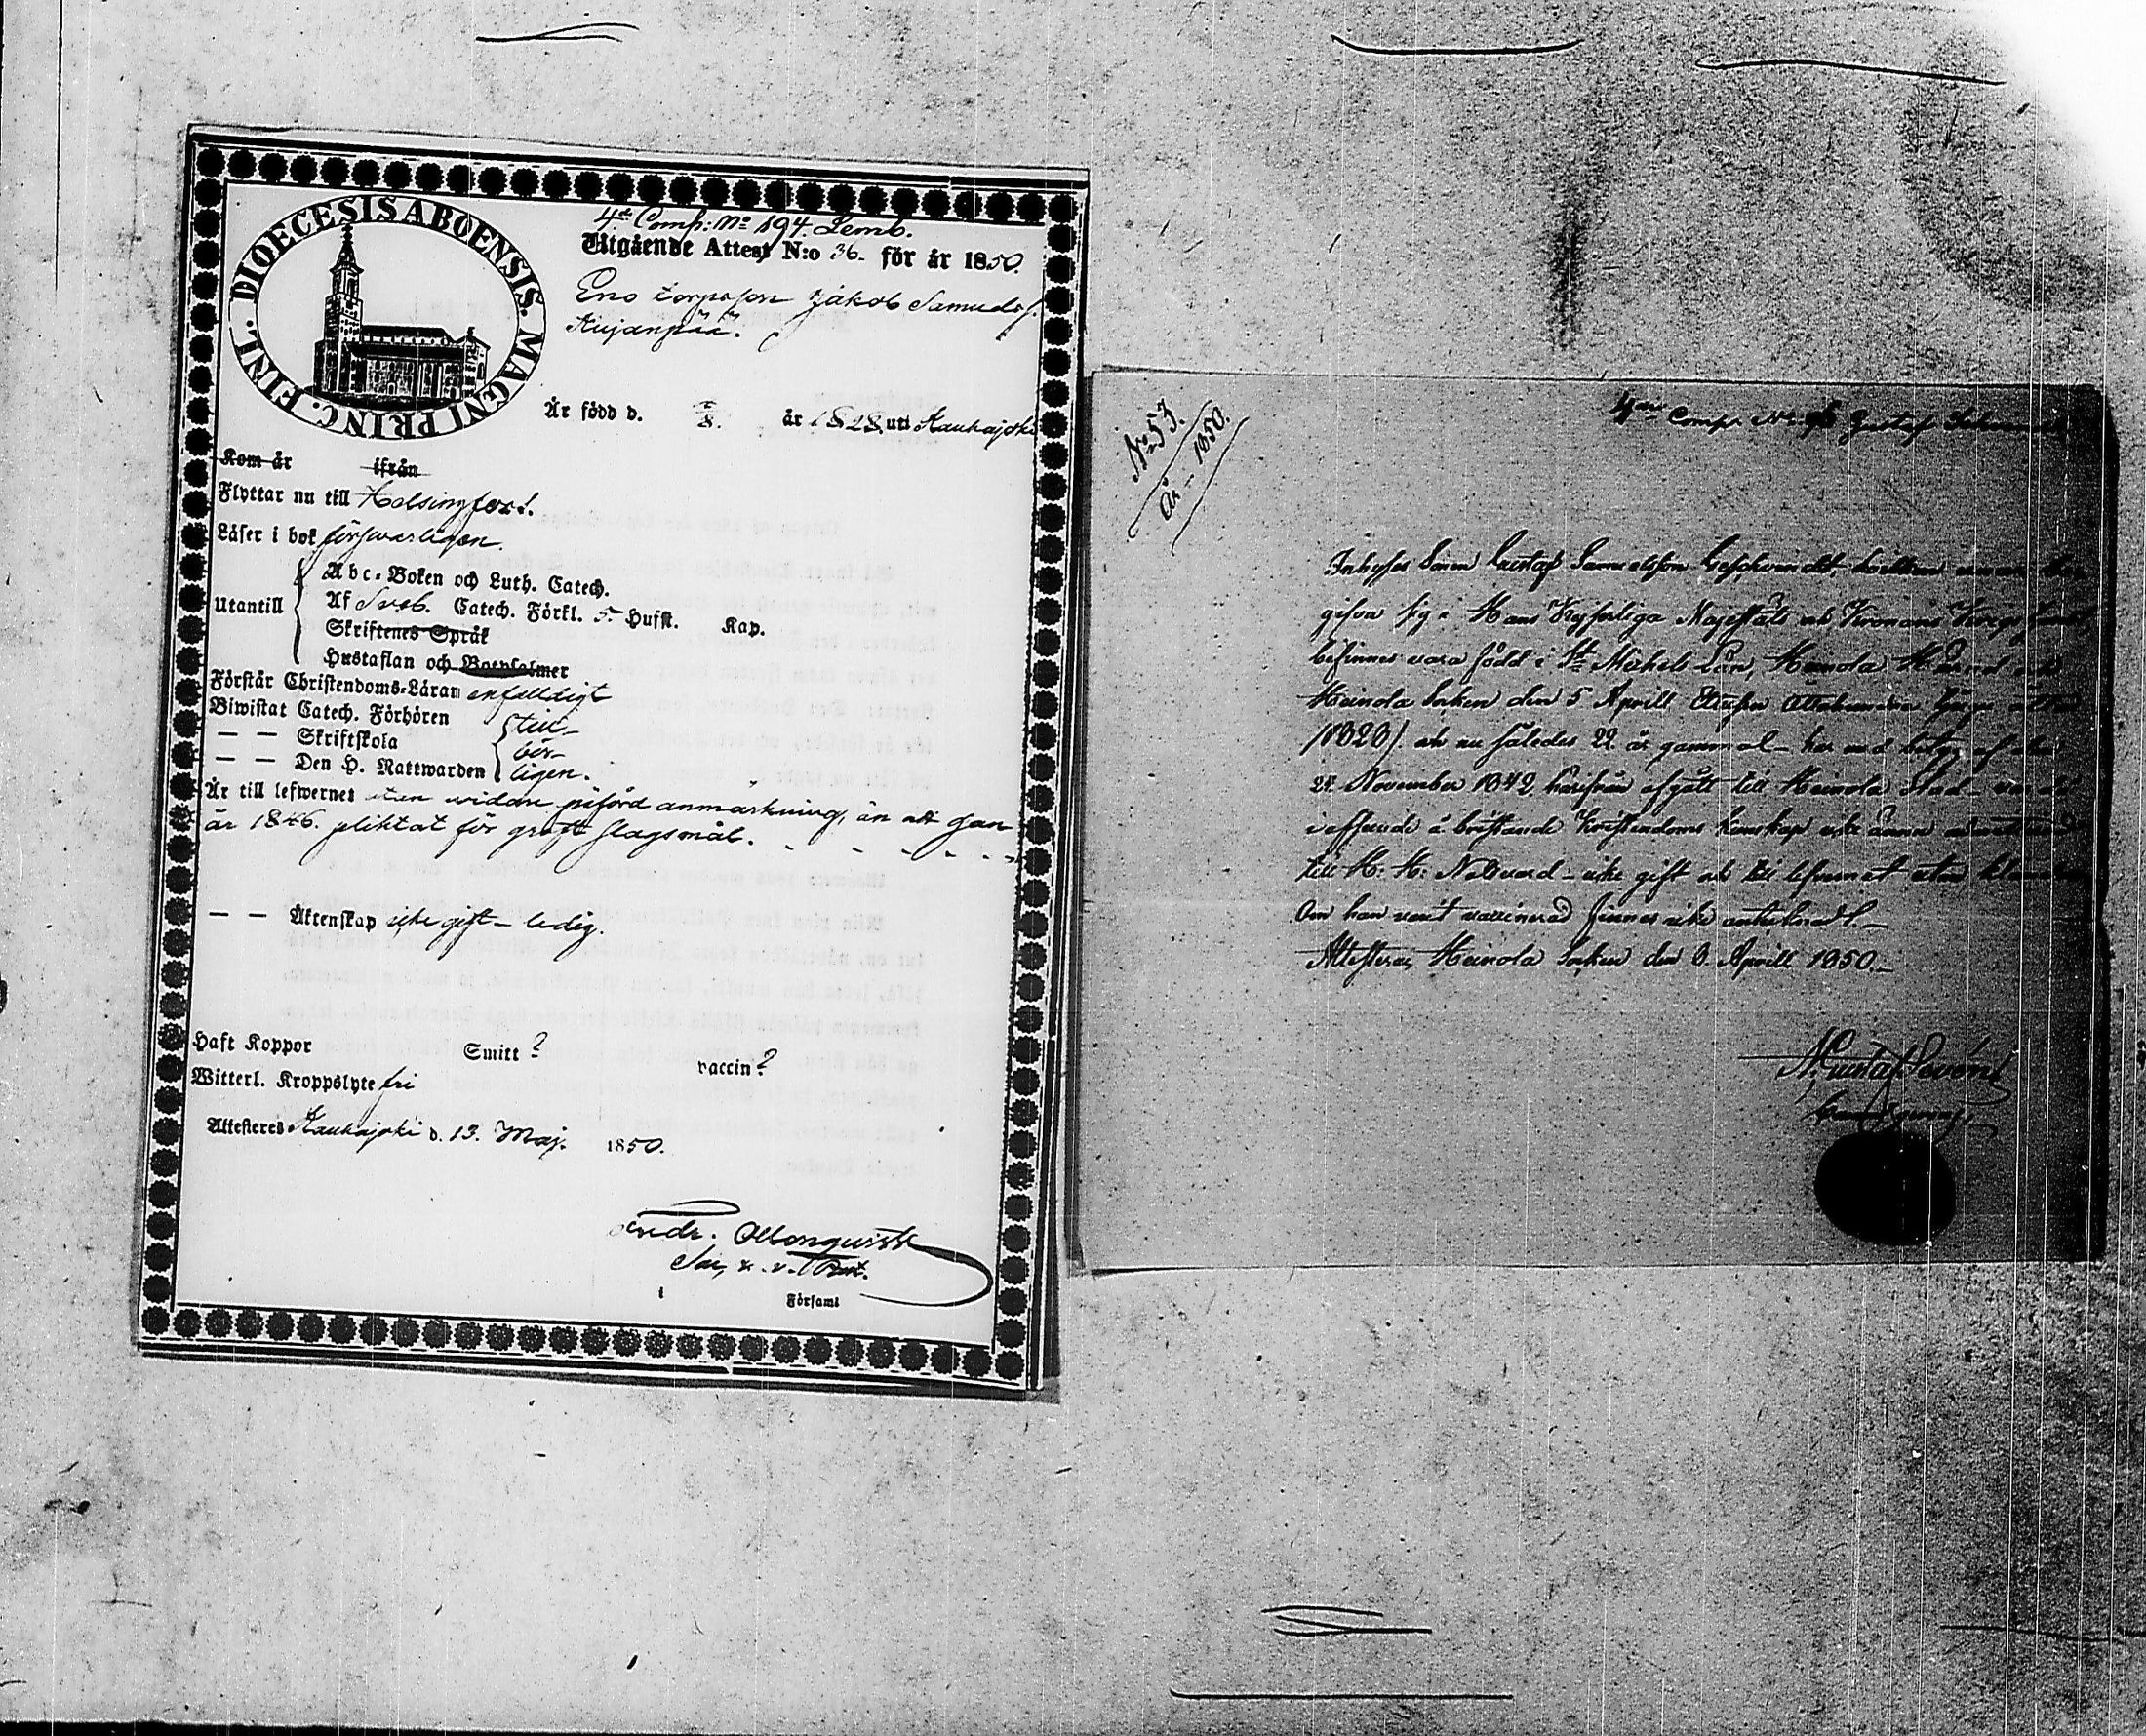 4de Comp: No 194. Lemb.
DIOECESIS ABOENSIS. MAGNI PRINC. FINL.
Utgående Attest N:o 36. för år 1850.
Eno torparson Jakob Samuelss.
Kujanpää.
Är född d. 2/8. år 1828. uti Kauhajoki
Kom år ifrån
Flyttar nu till Helsingfors.
Läser i bok försvarligen.
Utantill
Abc-Boken och Luth. Catech.
Af Sveb. Catech. Förkl. 5. Hufst. Kap.
Skriftenes Språk
Hustaflan och Botpsalmer
Förstår Christendoms-Läran enfaldigt
Biwistat Catech. Förhören till-
— — Skriftskola bör-
— — Den H. Nattwarden ligen.
Är till lefwernet utan widare påförd anmärkning, än att han
år 1846. pliktat för groft slagsmål.
— — Äktenskap icke gift - ledig.
Haft Koppor Smitt? vaccin?
Witterl. Kroppslyte fri
Attesteres Kauhajoki d. 13. Maj. 1850.
Andr. Ollonquist
v. Past.
i Församl
4de Comp. No Gustaf
No 53.
År - 1850.
Inhyses Sonen Gustaf Samuelsson Geschvindt, hvilken
gifva sig i Hans Kejserliga Majestäts och Kronans Krigs
befinnes vara född i St Michels Län, Heinola Härad och
Heinola Socken den 5 Aprill Ettusen Ottahundra
/1828/. och nu således 22 år gammal - har med betyg af den
24 November 1842 härifrån afgått till Heinola Stad -
i afseende å bristande Kristendoms kunskap icke ännu
till H: H: Nattvard - icke gift och till lefvernet utan
Om han varit vaccinerad finnes icke antecknadt. -
Attesterar, Heinola Socken den 8 Aprill 1850. -
Gustaf